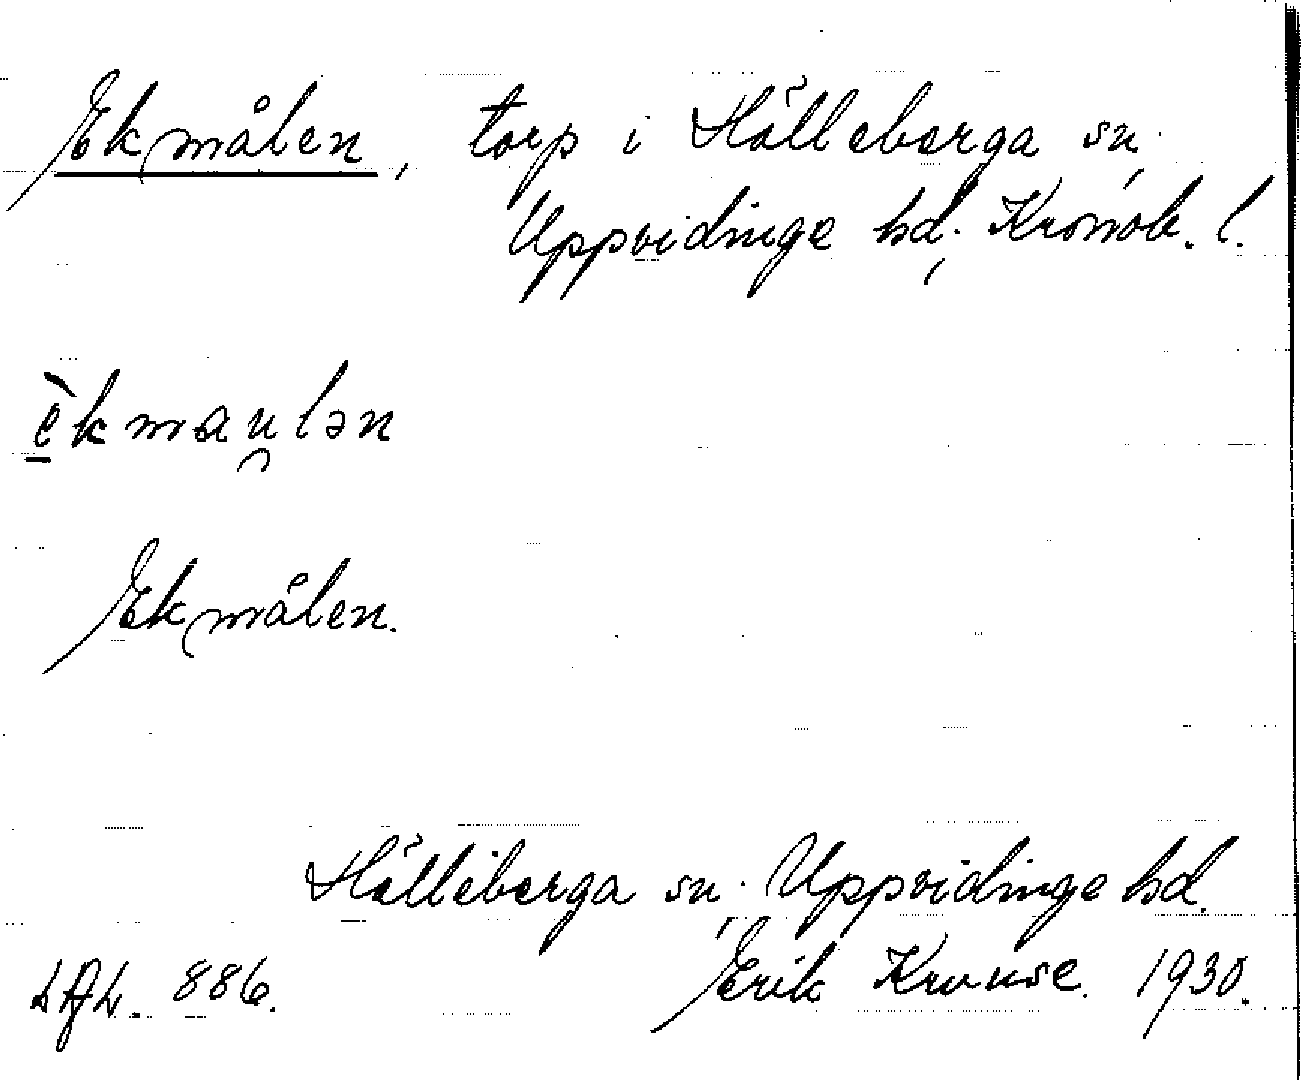 Ekmålen, torp i Hälleberga sn.,
Uppvidinge hd., Kronob. l.
e̠̖kmau̯lən
Ekmålen.
Hälleberga sn., Uppvidinge hd.
LAL. 886. Erik Kruuse. 1930.